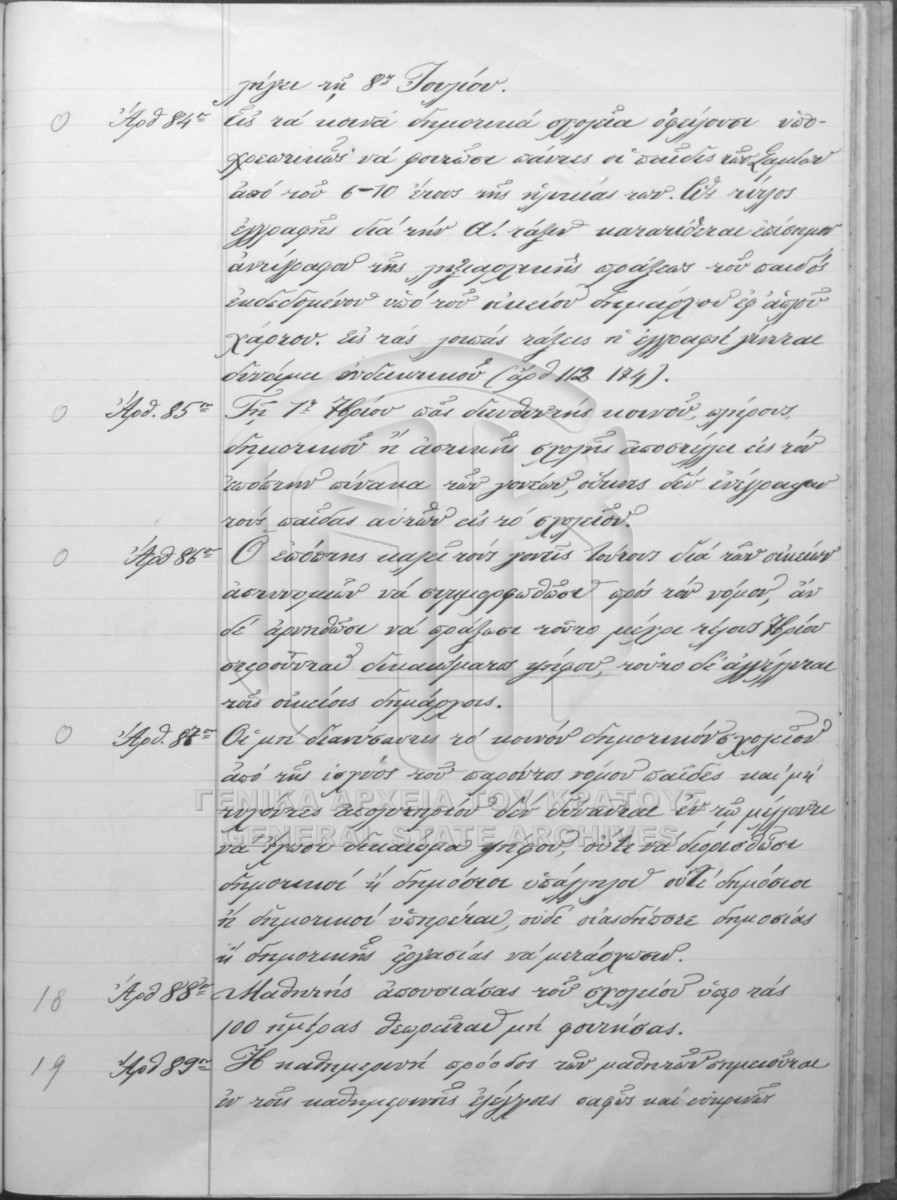 λήγει τῇ 8ῃ Ἰουλίου.
0 Ἄρθ 84ον Εἰς τά κοινά δημοτικά σχολεῖα ὀφείλουσι ὑπο-
χρεωτικῶς νά φοιτῶσι πάντες οἱ παῖδες τῶν Σαμίων
ἀπό τοῦ 6-10 ἔτους τῆς ἡλικίας των. Ὡς τίτλος
ἐγγραφῆς διά τήν Α! τάξιν κατατίθεται ἐπίσημον
ἀντίγραφον τῆς ληξιαρχικῆς πράξεως τοῦ παιδός
ἐκδεδομένον ὑπό τοῦ οἰκείου δημάρχου ἐφ' ἁπλοῦ
χάρτου. Εἰς τάς λοιπάς τάξεις ἡ ἐγγραφή γίνεται
δυνάμει ἐνδεικτικοῦ (ἄρθ 112 174).
0 Ἄρθ. 85ον Τῇ 1ῃ 7βρίου πᾶς διευθυντής κοινοῦ, πλήρους,
δημοτικοῦ ἤ ἀστικῆς σχολῆς ἀποστέλλει εἰς τόν
ἐπόπτην πίνακα τῶν γονέων, οἵτινες δέν ἐνέγραψαν
τούς παῖδας αὐτῶν εἰς τό σχολεῖον.
0 Ἄρθ 86ον Ὁ ἐπόπτης καλεῖ τούς γονεῖς τούτους διά τῶν οἰκείων
ἀστυνομιῶν νά συμμορφωθῶσι πρός τόν νόμον, ἄν
δέ ἀρνηθῶσι νά πράξωσι τοῦτο μέχρι τέλους 7βρίου
στεροῦνται δικαιώματος ψήφου, τοῦτο δέ ἀγγέλλεται
τοῖς οἰκείοις δημάρχοις.
0 Ἄρθ. 87ον Οἱ μή διανύσαντες τό κοινόν δημοτικόν σχολεῖον
ἀπό τῆς ἰσχύος τοῦ παρόντος νόμου παῖδες καί μή
τυχόντες ἀπολυτηρίου δέν δύνανται ἐν τῷ μέλλοντι
νά ἔχωσι δικαίωμα ψήφου, οὔτε νά διορισθῶσι
δημοτικοί ἤ δημόσιοι ὑπάλληλοι οὔτε δημόσιοι
ἤ δημοτικοί ὑπηρέται, οὐδέ οἱασδήποτε δημοσίας
ἤ δημοτικῆς ἐργασίας νά μετάσχωσιν.
18 Ἄρθ 88ον Μαθητής ἀπουσιάσας τοῦ σχολείου ὑπέρ τάς
100 ἡμέρας θεωρεῖται μή φοιτήσας.
19 Ἄρθ 89ον Ἡ καθημερινή πρόοδος τῶν μαθητῶν σημειοῦται
ἐν τοῖς καθημερινοῖς ἐλέγχοις σαφῶς καί εὐκρινῶς
ΓΕΝΙΚΑ ΑΡΧΕΙΑ ΤΟΥ ΚΡΑΤΟΥΣ
GENERAL STATE ARCHIVES